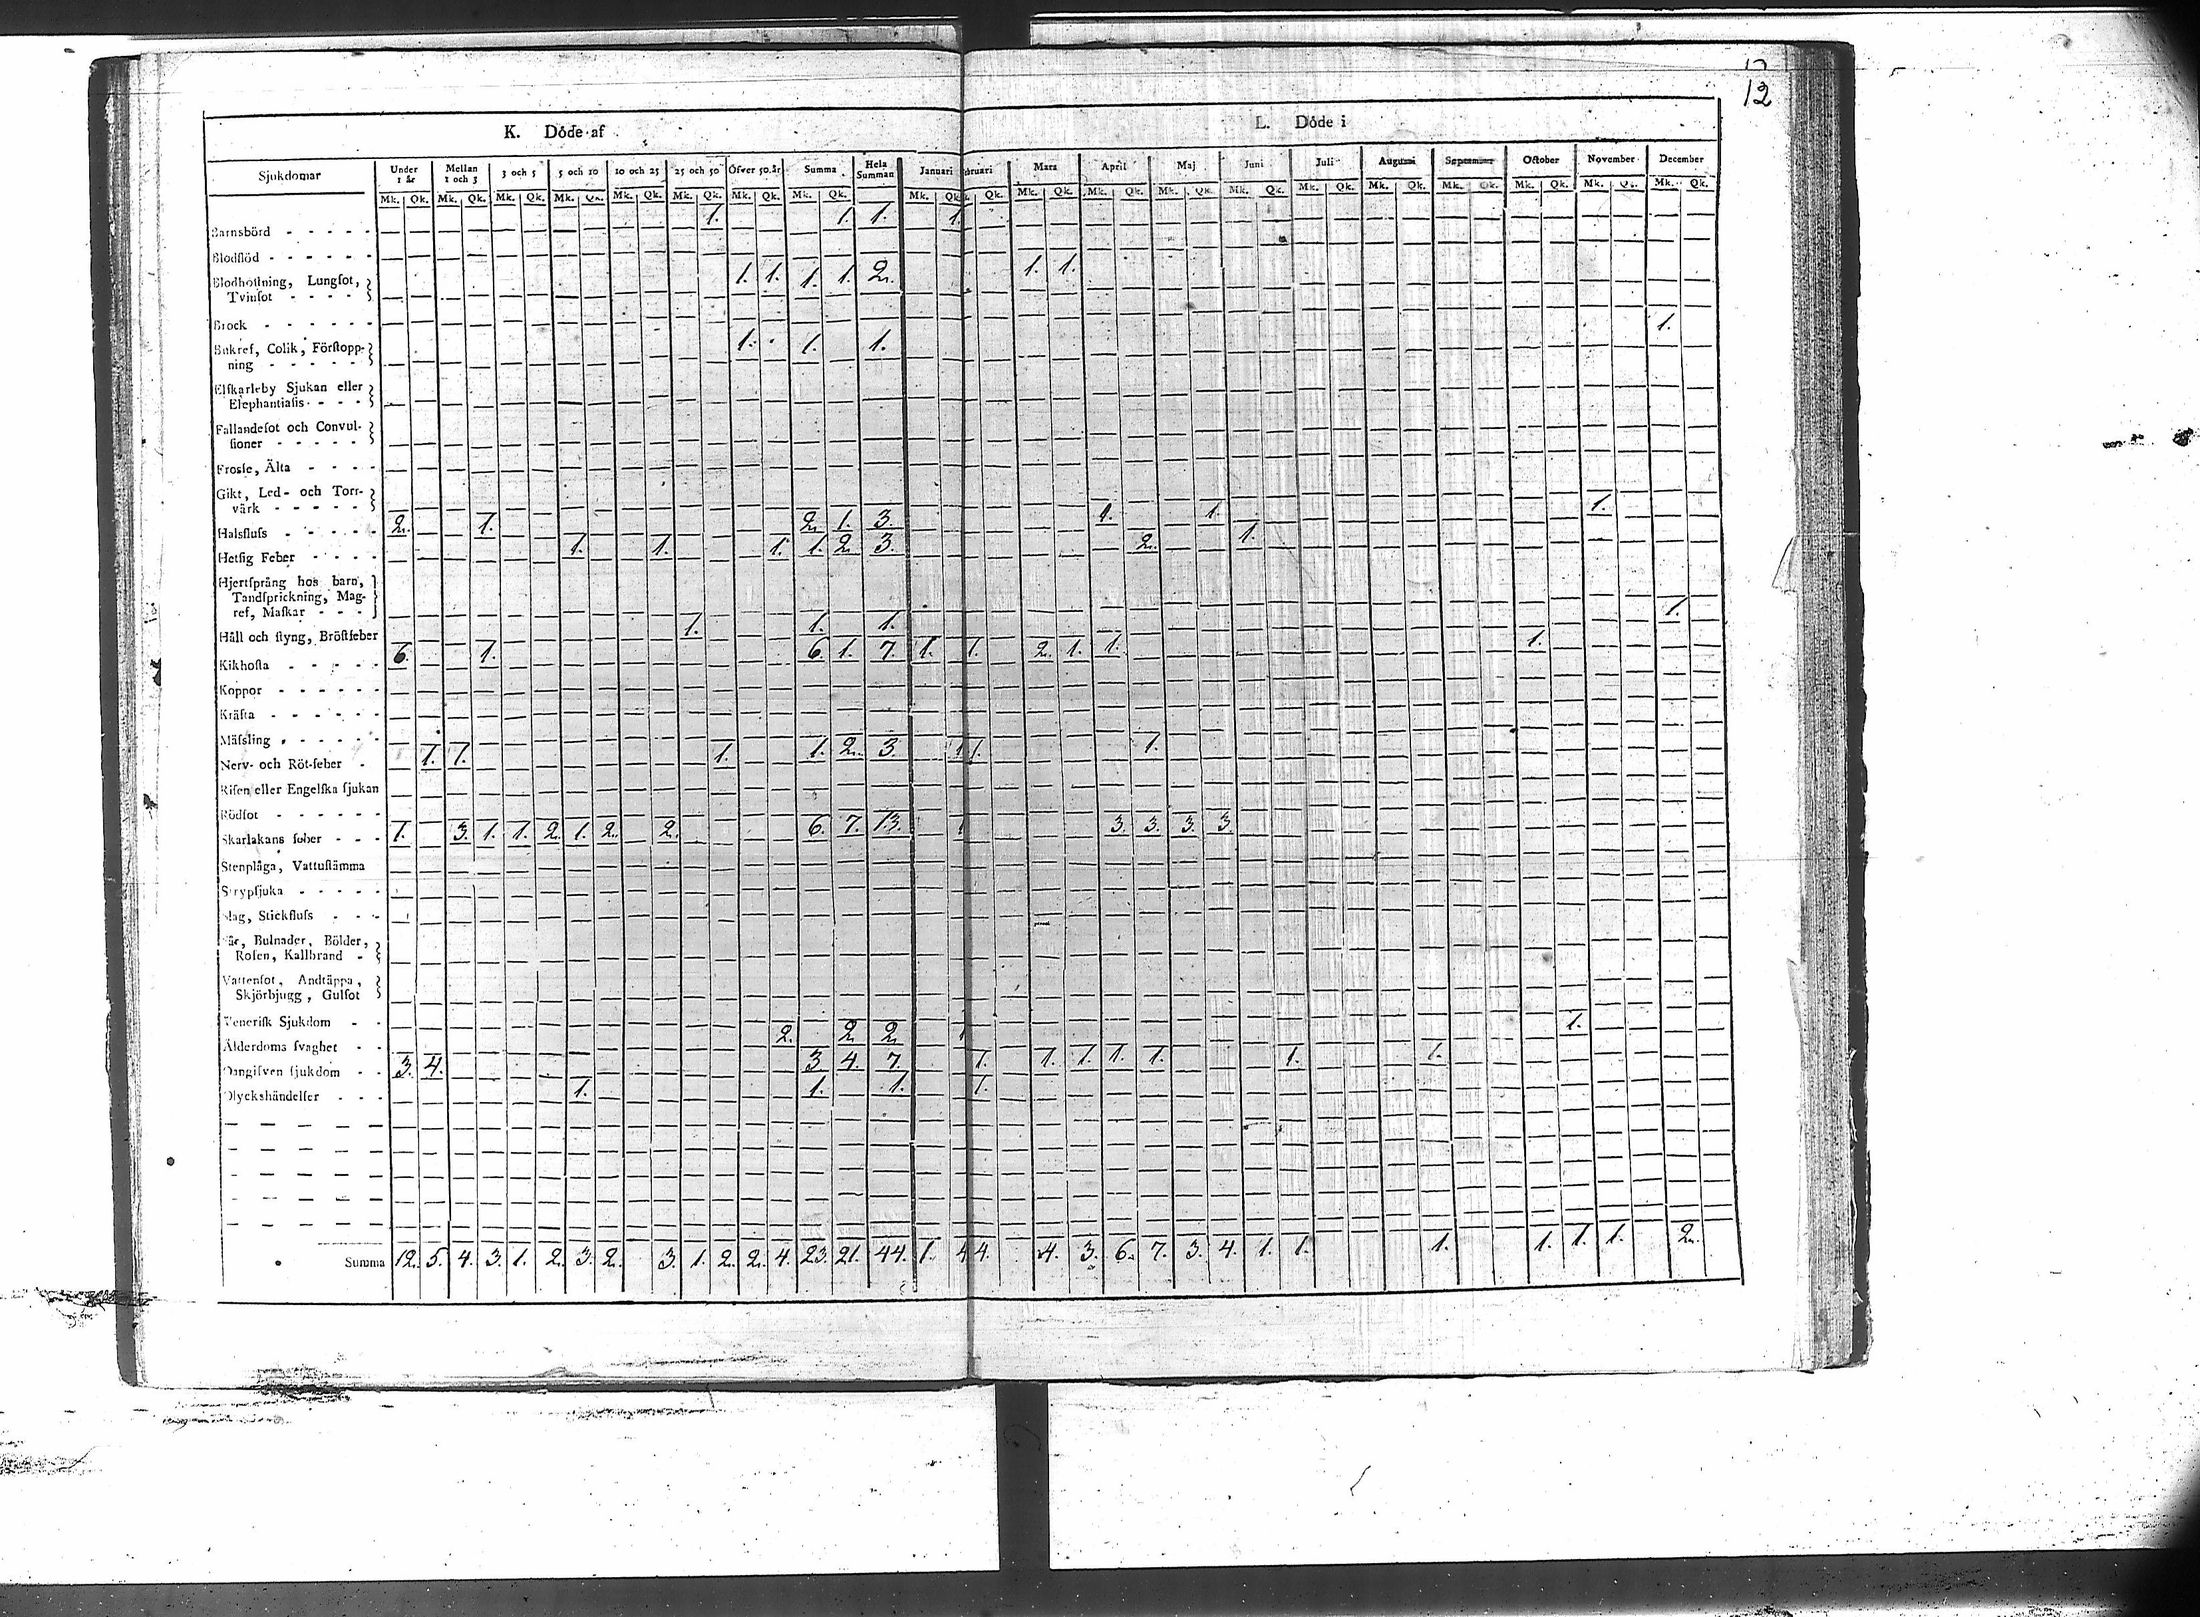 12
K. Döde af
L. Döde i
Sjukdomar Under 1 år Mellan 1 och 3 3 och 5 5 och 10 10 och 25 25 och 50 Öfver 50 år Summa Hela Summan Januari bruari Mars April Maj Juni Juli Augusti September October November December
Mk. Qk. Mk. Qk. Mk. Qk. Mk. Qk. Mk. Qk. Mk. Qk. Mk. Qk. Mk. Qk. Mk. Qk. Qk. Mk. Qk. Mk. Qk. Mk. Qk. Mk. Qk. Mk. Qk. Mk. Qk. Mk. Qk. Mk. Qk. Mk. Qk. Mk. Qk.
Barnsbörd - - - - - 1. 1. 1. 1.
Blodflöd - - - - - -
Blodhostning, Lungsot, Tvinsot - - - - 1. 1. 1. 1. 2. 1. 1.
Brock - - - - - -
Bukref, Colik, Förstoppning - - - - - 1. 1. 1. 1.
Elfkarleby Sjukan eller Elephantiasis - - -
Fallandesot och Convulsioner - - - - -
Frossa, Älta - - - -
Gikt, Led- och Torrvärk - - - - -
Halsfluss - - - - - 2. 1. 2. 1. 3. 1. 1. 1.
Hetsig Feber - - - - 1. 1. 1. 1. 2. 3. 2. 1.
Hjertsprång hos barn, Tandsprickning, Magref, Maskar - - -
Håll och styng, Bröstfeber 1. 1. 1. 1.
Kikhosta - - - - - 6. 1. 6. 1. 7. 1. 1. 2. 1. 1. 1.
Koppor - - - - - -
Kräfta - - - - - -
Mässling - - - - - -
Nerv- och Röt-feber - 1. 1. 1. 1. 2. 3. 1 1. 1.
Risen eller Engelska sjukan
Rödsot - - - - - -
Skarlakans feber - - - 1. 3. 1. 1. 2. 1. 2. 2. 6. 7. 13. 1 3. 3. 3. 3.
Stenplåga, Vattustämma
Strypsjuka - - - - -
Slag, Stickfluss - - -
Sår, Bulnader, Bölder, Rosen, Kallbrand -
Vattensot, Andtäppa, Skjörbjugg, Gulsot
Venerisk Sjukdom - -
Ålderdoms svaghet - - 2. 2 2 1 1.
Oangifven sjukdom - - 3. 4. 3 4. 7. 1. 1. 1. 1. 1. 1. 1.
Olyckshändelser - - - 1. 1. 1. 1.
Summa 12. 5. 4. 3. 1. 2. 3. 2. 3. 1. 2. 2. 4. 23. 21. 44. 1. 4 4. 4. 3. 6. 7. 3. 4. 1. 1. 1. 1. 1. 1. 2.